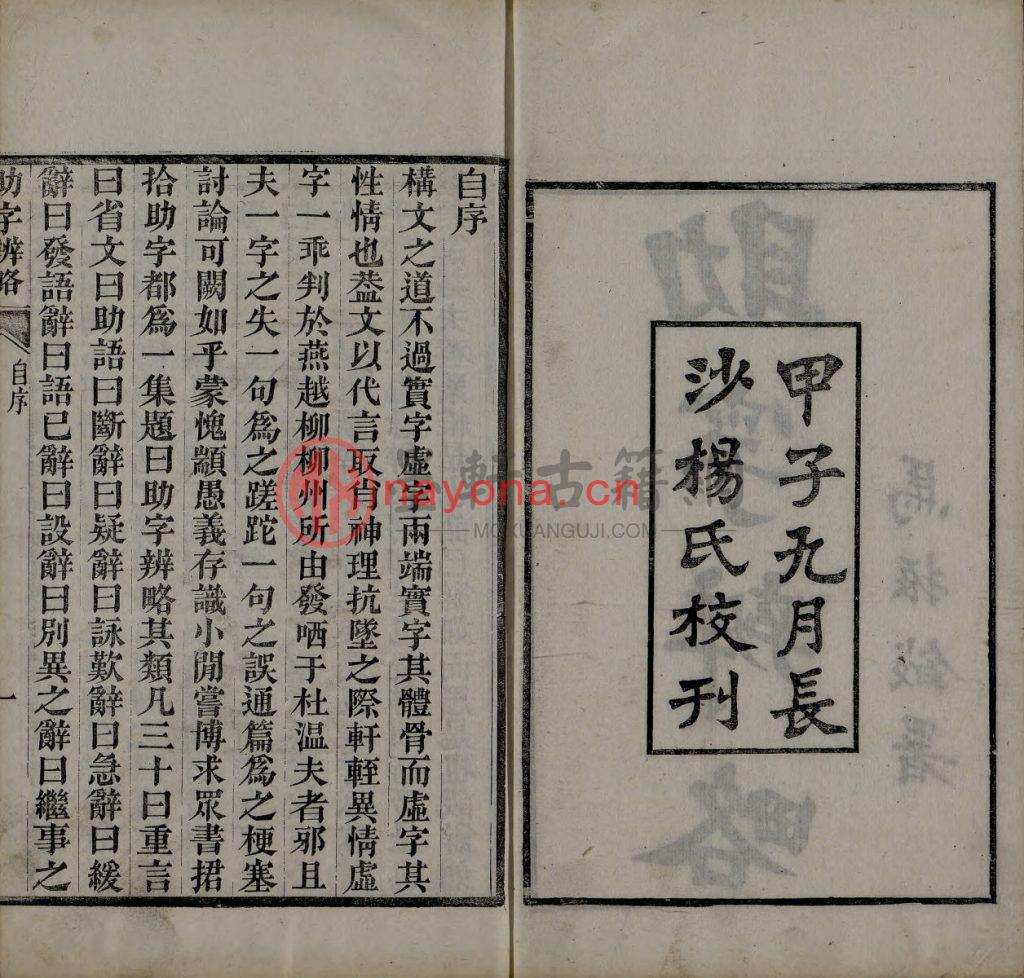 甲子九月長
沙楊氏校刊
自序
構文之道不過實字虛字兩端實字其體骨而虛字其
性情也葢文以代言取肖神理抗墜之際軒輊異情虛
字一乖判於燕越柳柳州所由發哂于杜温夫者邪且
夫一字之失一句爲之蹉跎一句之誤通篇爲之梗塞
討論可闕如乎蒙愧顓愚義存識小閒嘗博求眾書捃
拾助字都爲一集題曰助字辨略其類凡三十曰重言
曰省文曰助語曰斷辭曰疑辭曰詠歎辭曰急辭曰緩
辭曰發語辭曰語已辭曰設辭曰別異之辭曰繼事之
助字辨略
自序
一
墨軒古籍
nayona.cn
MOXUANGUJI.COM